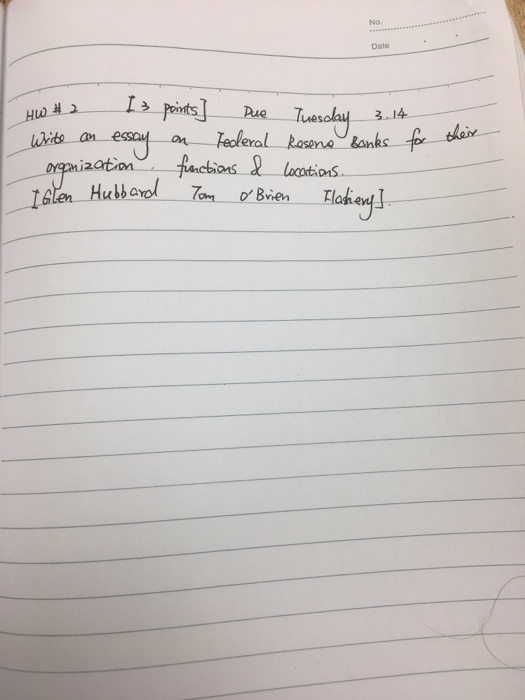 No.
Date
HW # 2 [3 points] Due Tuesday 3.14
Write an essay on Federal Reserve Banks for their
organization, functions & locations.
[Glen Hubbard Tom O'Brien ].